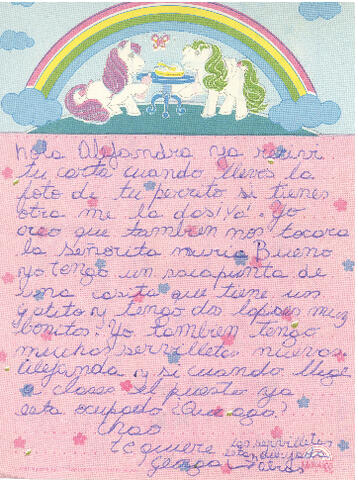 hola Alejandra ya recivi
tu carta cuando lleves la
foto de tu perrito si tienes
otra me la das? Ya. Yo
creo que tambien nos tocara
la señorita muria Bueno
yo tengo un sacapunta de
una casita que tiene un
gatito y tengo dos lapices muy
bonitos. Yo tambien tengo
muchas servilletas nuevas.
alejanda y si cuando llege
a clases el puesto ya
esta ocupado ¿Que ago?
chao
te quiere
las servilletas